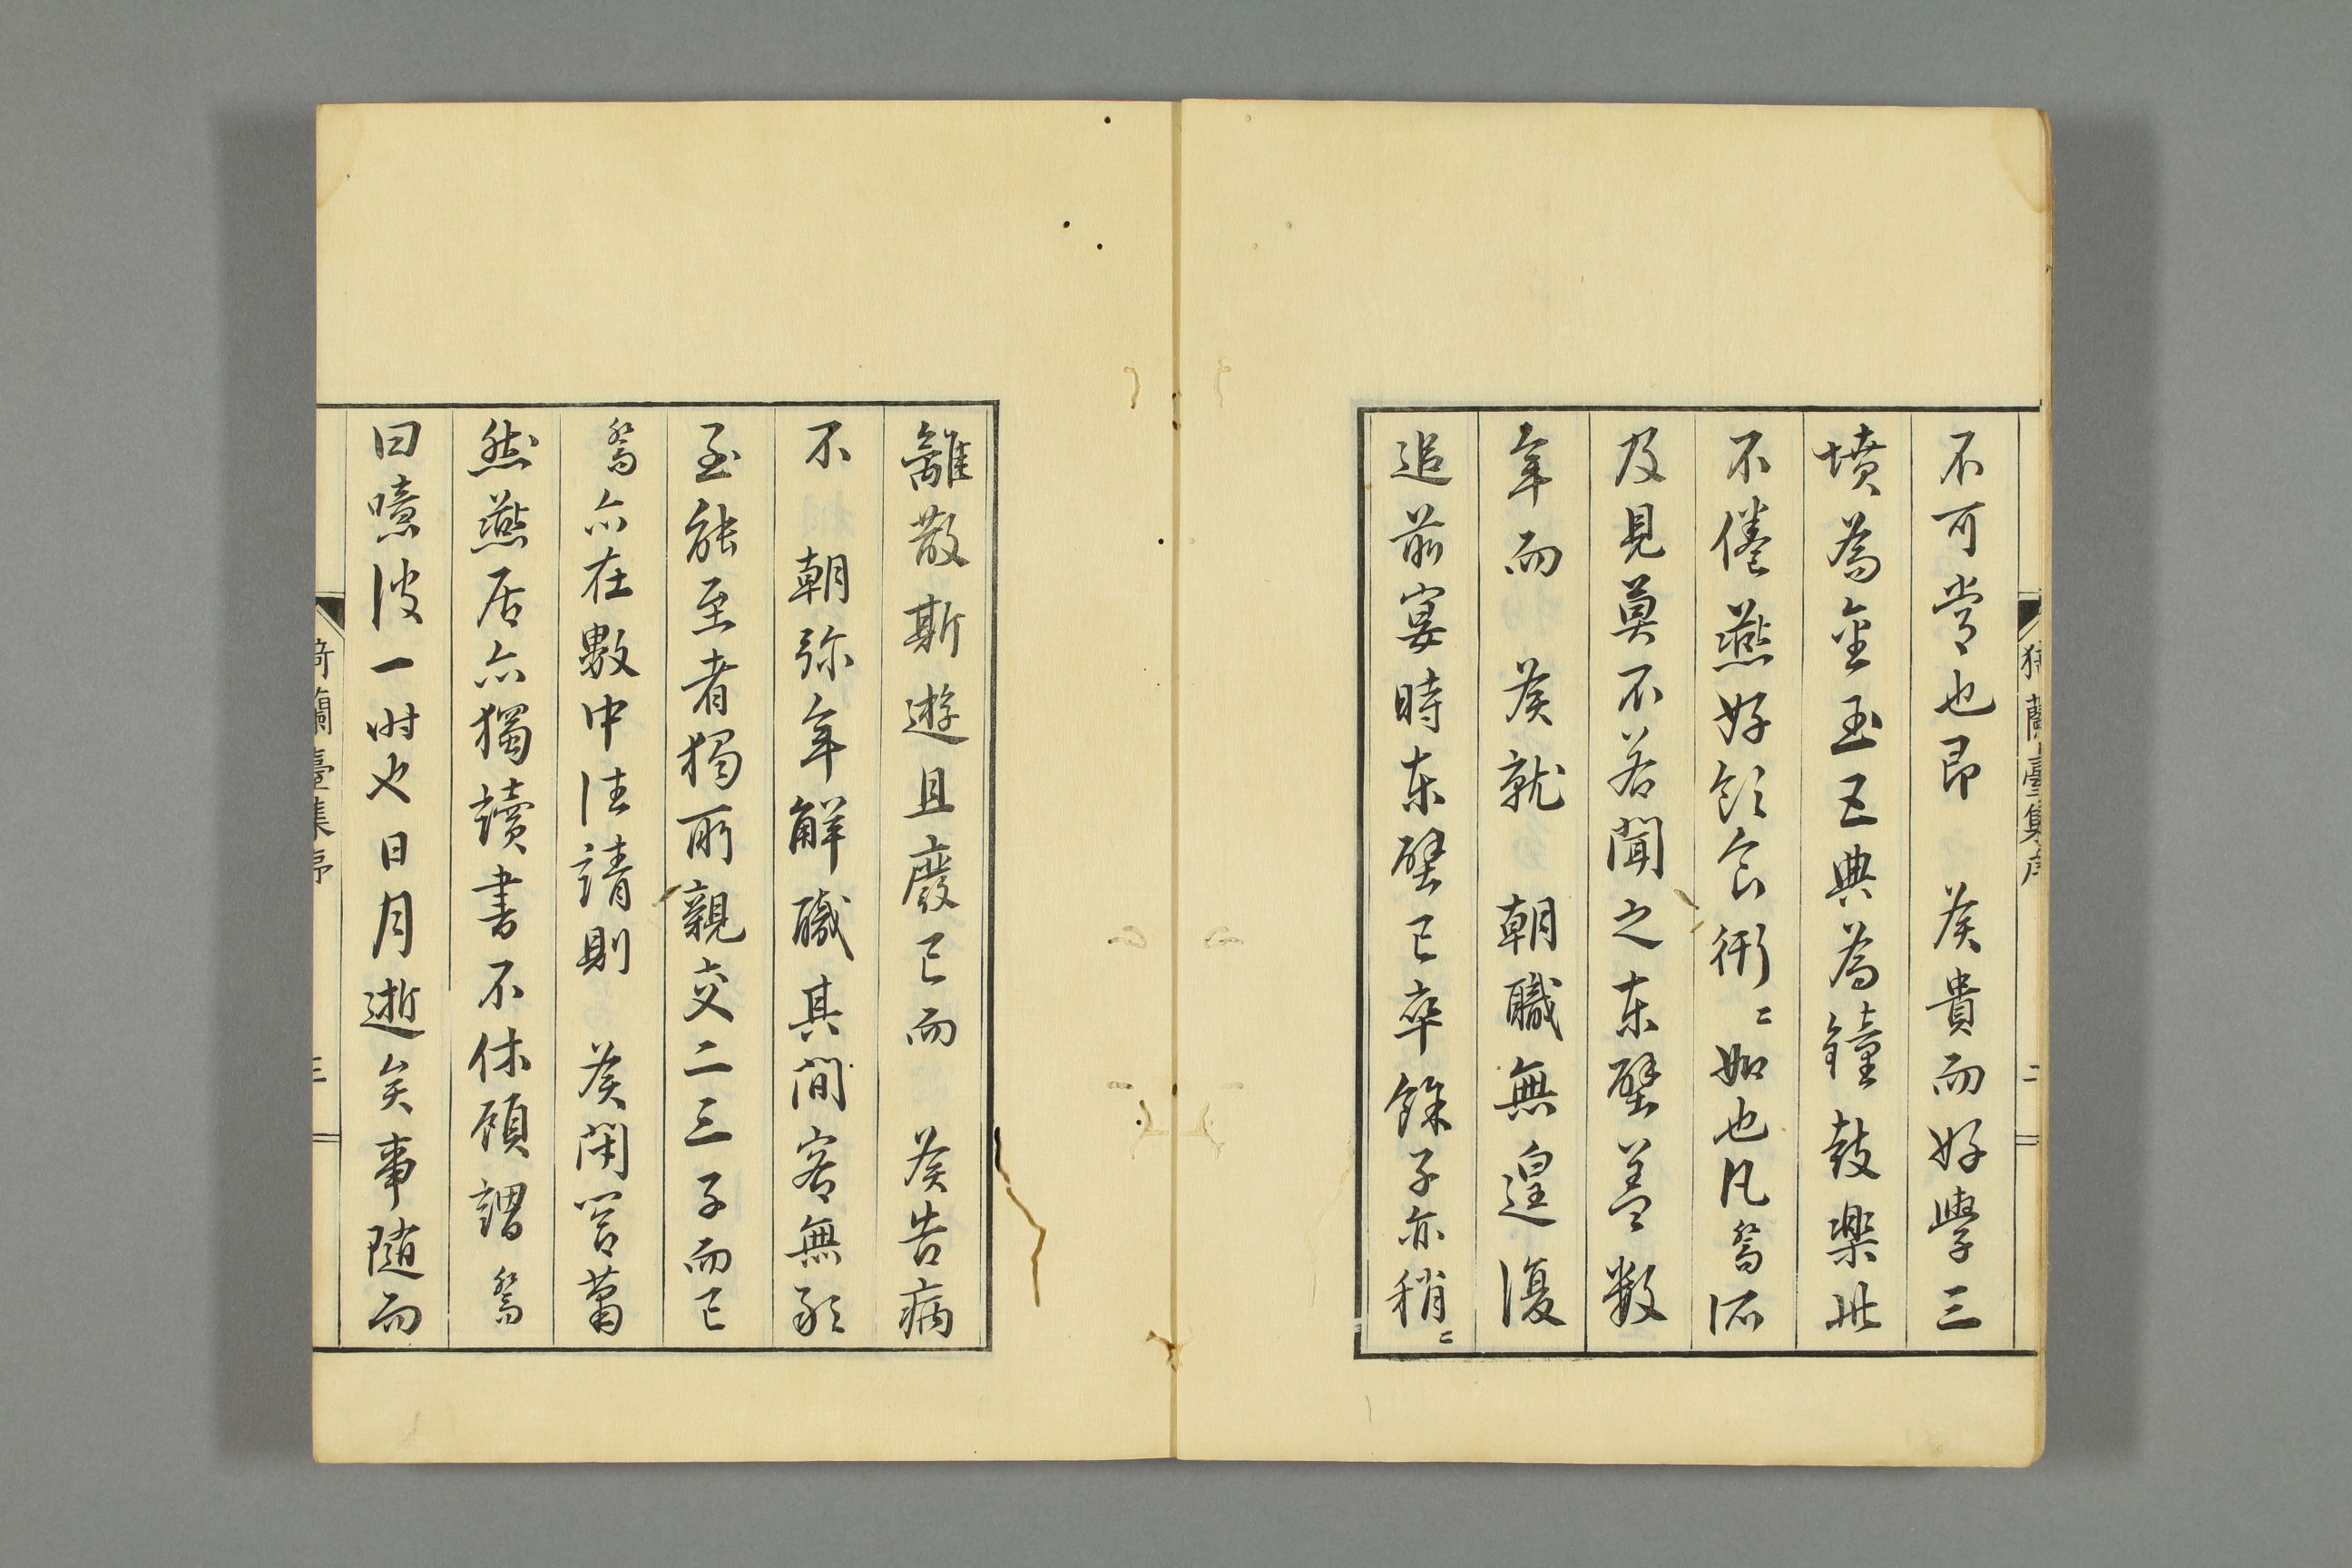 猗蘭臺集序 二
不可常也即 矦貴而好學三
墳為金玉五典為鐘鼓樂此
不倦燕好飲食衎〻如也凡喬所
及見莫不若聞之東壁蓋數
年而 矦就 朝職無遑復
追前宴時東壁已卒餘子亦稍〻
離散斯遊且廢已而 矦告病
不 朝弥年解職其間客無敢
至能至者獨所親交二三子而已
喬亦在數中往請則 矦閑閤蕭
然燕居亦獨讀書不休顧謂喬
曰噫彼一時也日月逝矣事隨而
猗蘭臺集序 三